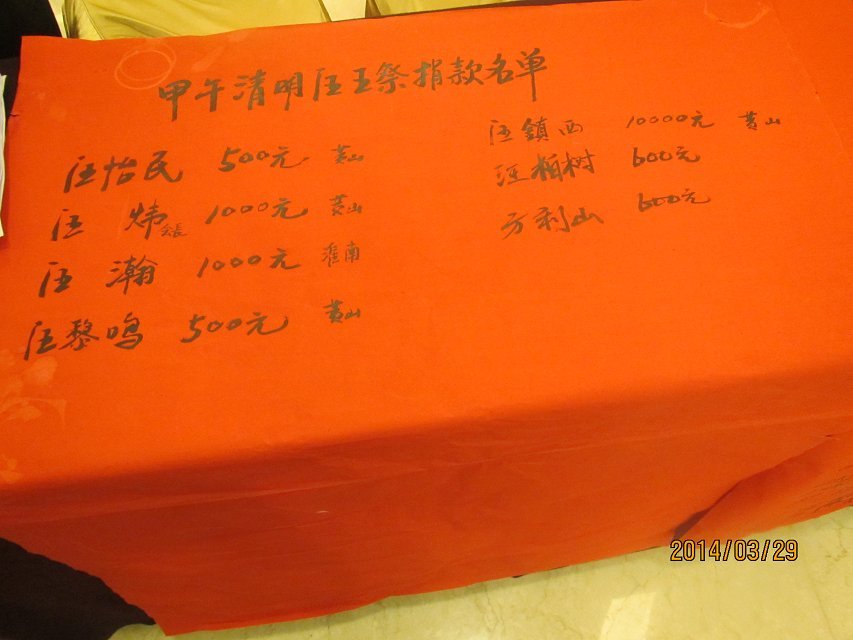 甲午清明汪王祭捐款名单
汪怡民 500元 黄山
汪炜会长 1000元 黄山
汪瀚 1000元 淮南
汪黎鸣 500元 黄山
汪鎮西 10000元 黄山
汪栢树 600元
方利山 600元
2014/03/29